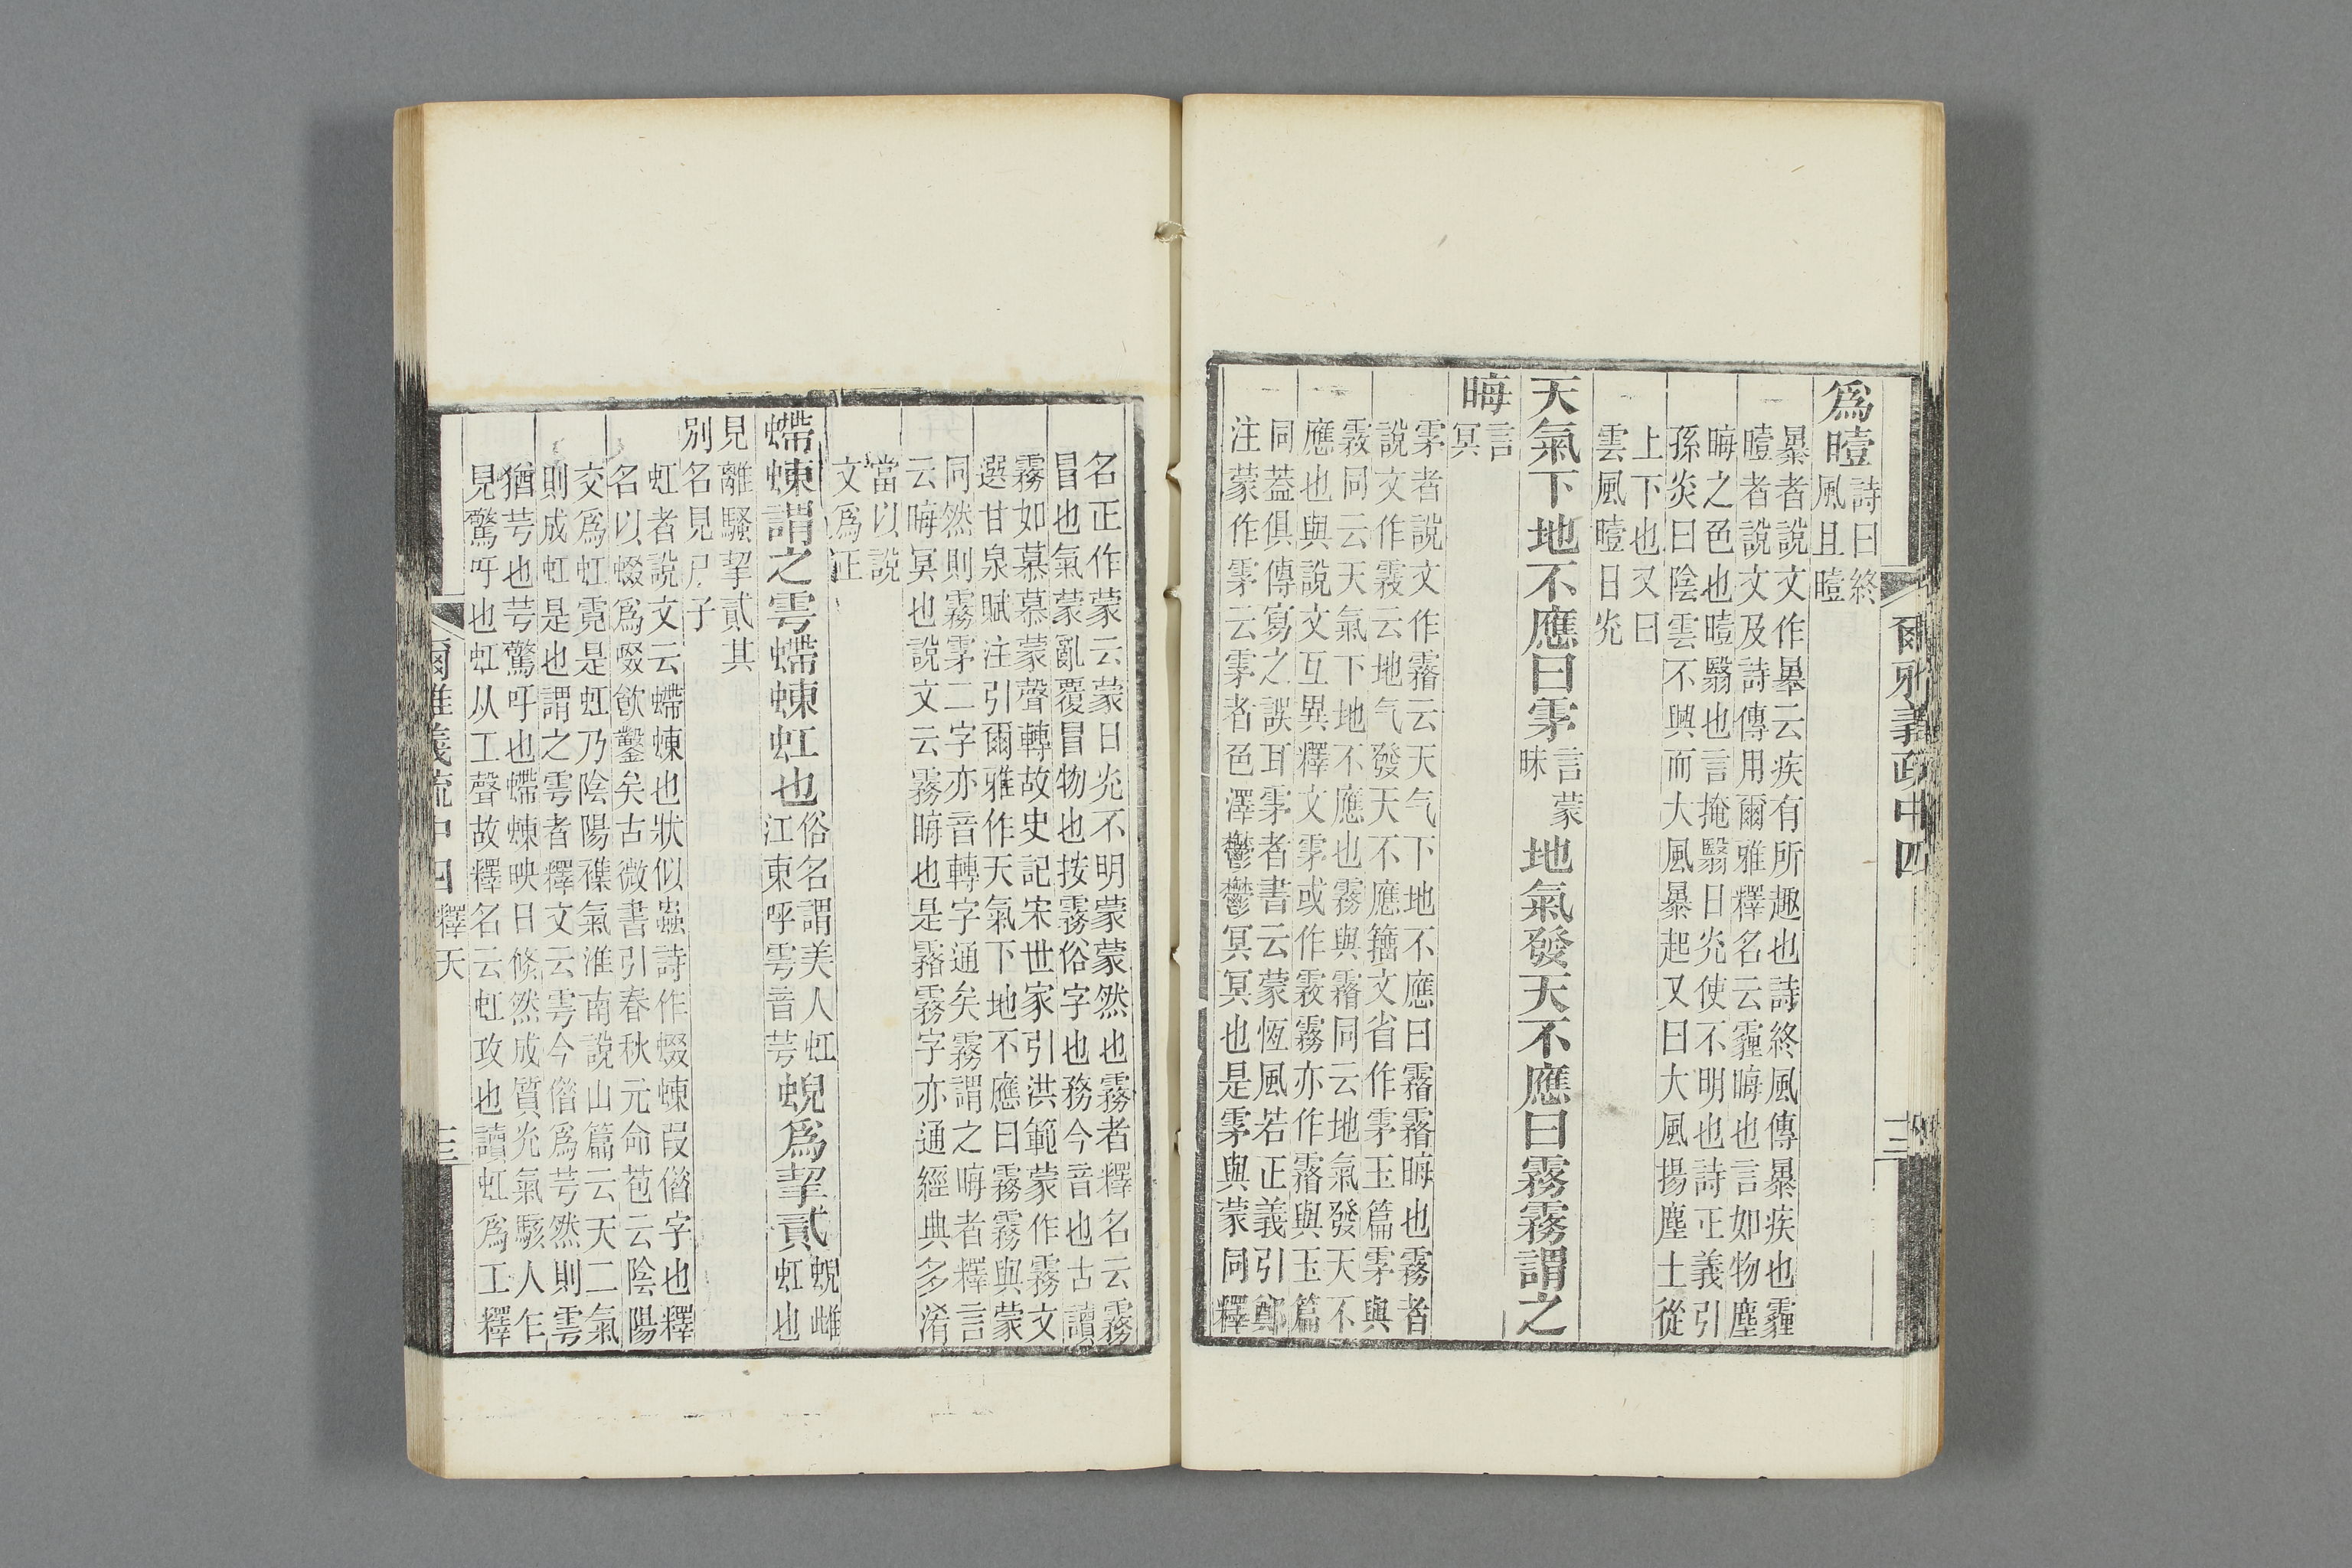 爾雅義疏中四
三
爲曀詩曰終
風且曀
暴者說文作㬥云疾有所趣也詩終風傳暴疾也霾
曀者說文及詩傳用爾雅釋名云霾晦也言如物塵
晦之色也曀翳也言掩翳日光使不明也詩正義引
孫炎曰陰雲不興而大風暴起又曰大風揚塵土從
上下也又曰
雲風曀日光
天氣下地不應曰雺言蒙
昧地氣發天不應曰霧霧謂之
晦言
冥
雺者說文作霿云天气下地不應曰霿霿晦也霧者
說文作霚云地气發天不應籒文省作雺玉篇雺與
霚同云天氣下地不應也霧與霿同云地氣發天不
應也與說文互異釋文雺或作霚霧亦作霿與玉篇
同蓋俱傳寫之誤耳雺者書云蒙恆風若正義引鄭
注蒙作雺云雺者色澤鬱鬱冥冥也是雺與蒙同釋
名正作蒙云蒙日光不明蒙蒙然也霧者釋名云霧
冒也氣蒙亂覆冒物也按霧俗字也務今音也古讀
霧如慕慕蒙聲轉故史記宋世家引洪範蒙作霧文
選甘泉賦注引爾雅作天氣下地不應曰霧霧與蒙
同然則霧雺二字亦音轉字通矣霧謂之晦者釋言
云晦冥也說文云霧晦也是霿霧字亦通經典多淆
當以說
文爲正
螮蝀謂之雩螮蝀虹也俗名謂美人虹
江東呼雩音芌蜺爲挈貳蜺雌
虹也
見離騷挈貳其
別名見尸子
虹者說文云螮蝀也狀似蟲詩作蝃蝀叚偺字也釋
名以蝃爲啜飲鑿矣古微書引春秋元命苞云陰陽
交爲虹霓是虹乃陰陽襍氣淮南說山篇云天二氣
則成虹是也謂之雩者釋文云雩今偺爲芌然則雩
猶芌也芌驚吁也螮蝀映日倐然成質光氣駭人乍
見驚吁也虹从工聲故釋名云虹攻也讀虹爲工釋
爾雅義疏中四 釋天
三